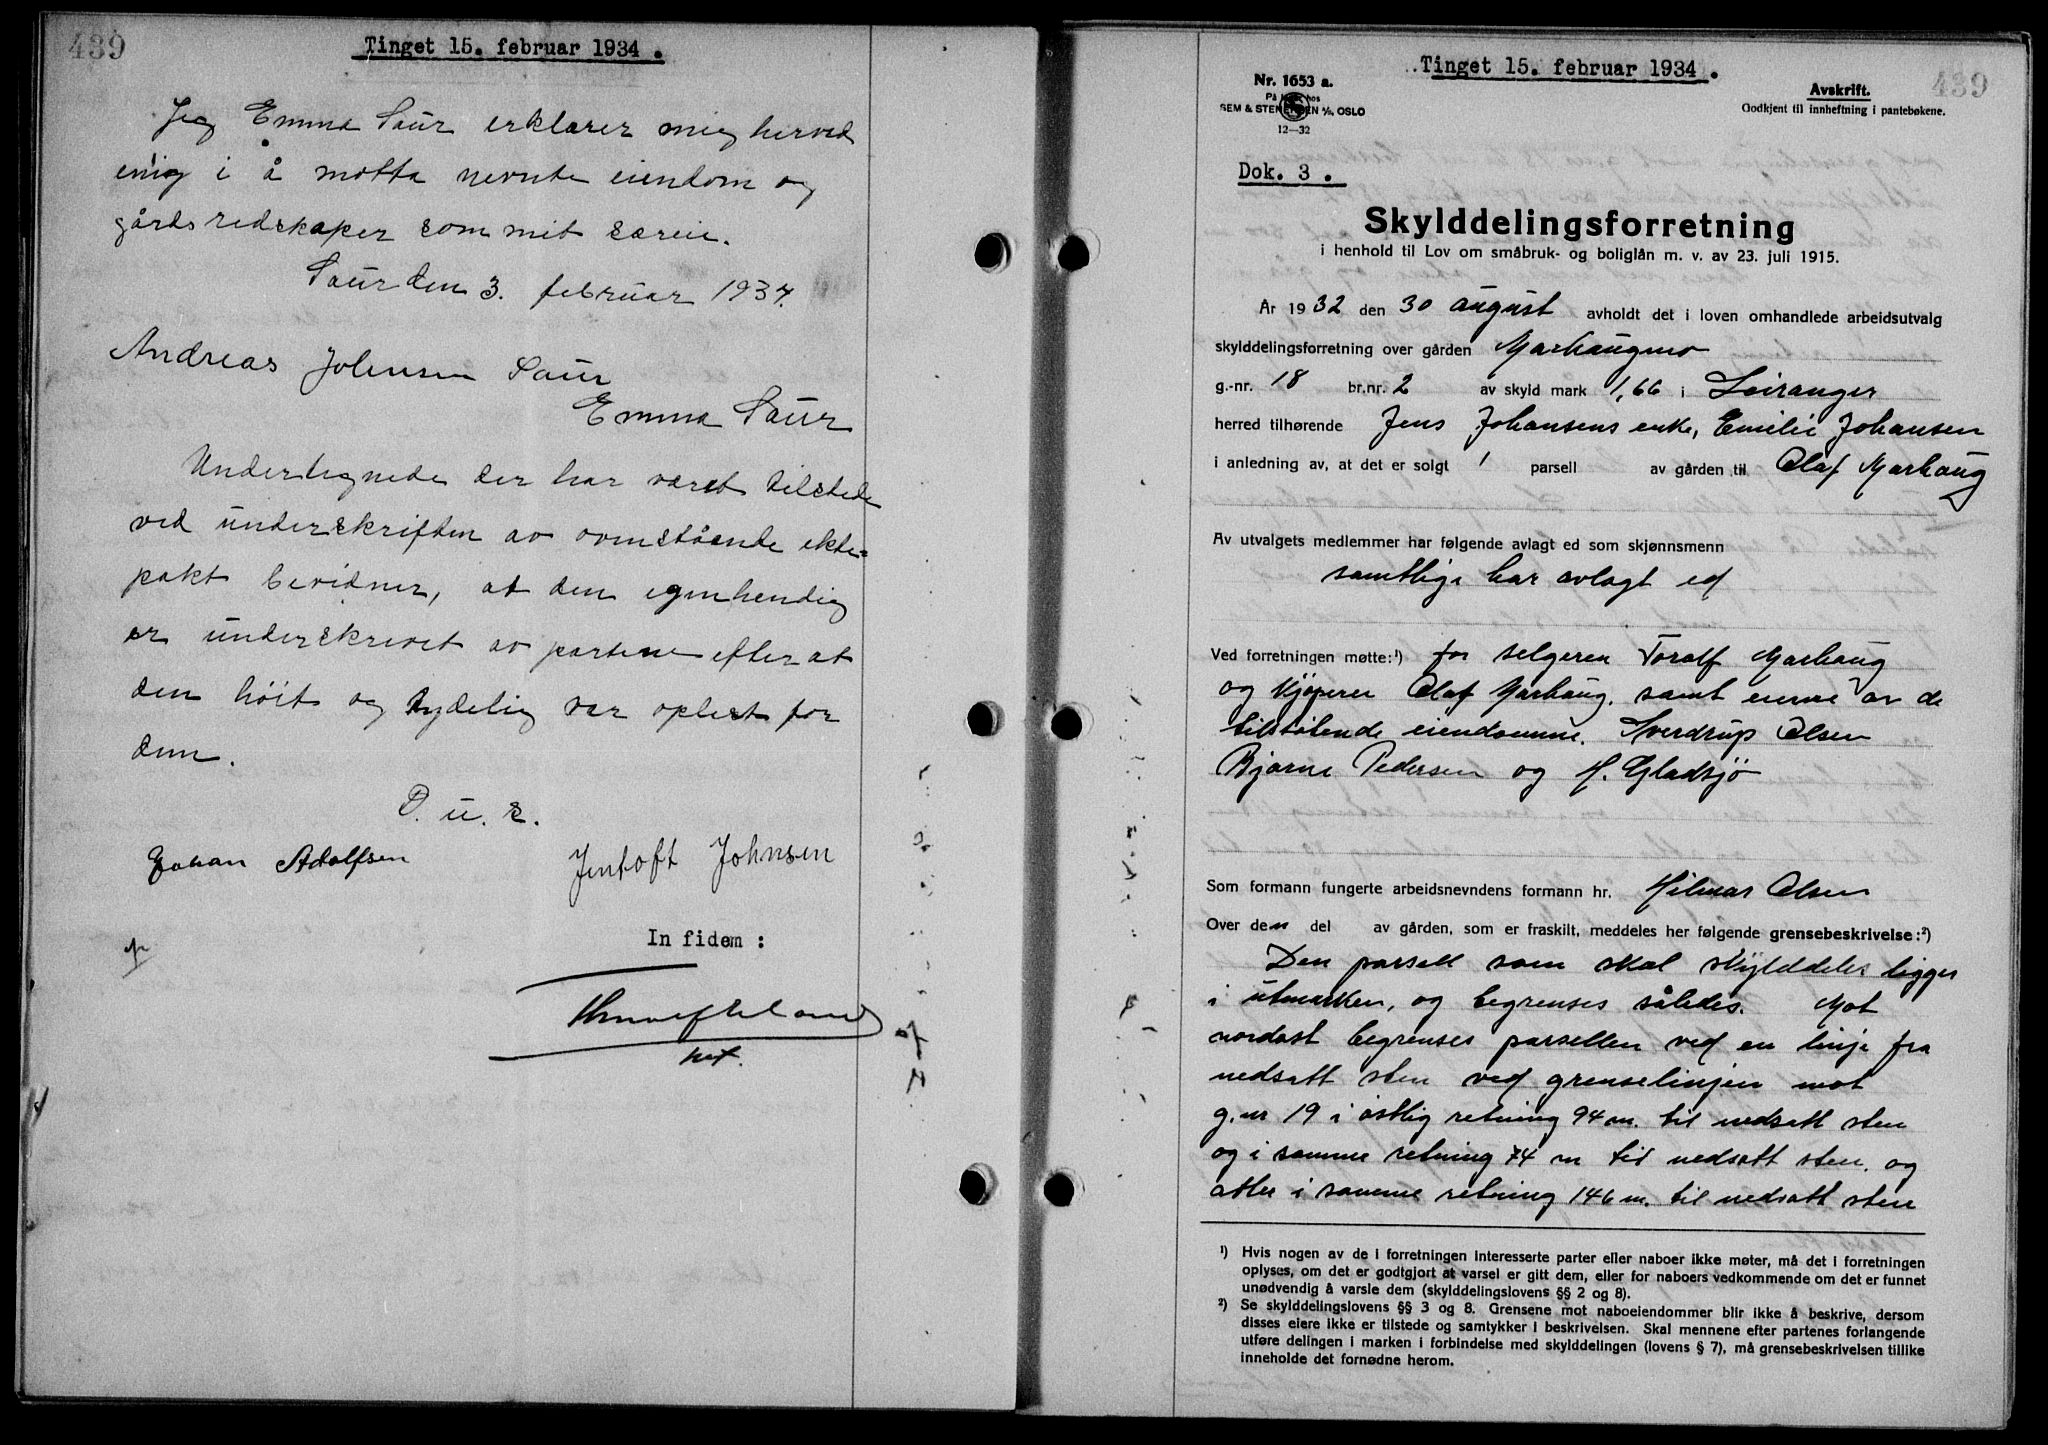 439
Tinget 15. februar 1934.
Jeg Emma Saur erklærer mig herved
enig i å motta nevnte eiendom og
gårdsredskaper som mit særeie.
Saur den 3. februar 1934.
Andreas Johnsen Saur
Emma Saur
Undertegnede der har været tilstede
ved underskriften av ovenstående ekte=
pakt bevidner, at den egenhendig
er underskrevet av partene efter at
den höit og tydelig var oplest for
dem.
D. u. s.
Johan Adolfsen Jentoft Johnsen
In fidem:
Tinget 15. februar 1934.
439
Nr. 1653 a.
På lager hos
SEM & STENERSEN A/S, OSLO
12—32
Avskrift.
Godkjent til innheftning i pantebøkene.
Dok. 3.
Skylddelingsforretning
i henhold til Lov om småbruk- og boliglån m. v. av 23. juli 1915.
År 1932 den 30 august avholdt det i loven omhandlede arbeidsutvalg
skylddelingsforretning over gården Marhaugmo
g.-nr. 18 br.nr. 2 av skyld mark 1,66 i Leiranger
herred tilhørende Jens Johansens enke, Emilie Johansen
i anledning av, at det er solgt 1 parsell av gården til Olaf Marhaug
Av utvalgets medlemmer har følgende avlagt ed som skjønnsmenn
samtlige har avlagt ed
Ved forretningen møtte:¹) for selgeren Toralf Marhaug
og kjøperen Olaf Marhaug. samt eierne av de
tilstøtende eiendomme. Sverdrup Olsen
Bjarne Pedersen og H. Gladsjö
Som formann fungerte arbeidsnevndens formann hr. Hilmar Olsen
Over den del av gården, som er fraskilt, meddeles her følgende grensebeskrivelse:²)
Den parsell som skal skylddeles ligger
i utmarken, og begrenses således. Mot
nordøst begrenses parsellen ved en linje fra
nedsatt sten ved grenselinjen mot
g.nr 19 i østlig retning 94 m. til nedsatt sten
og i samme retning 74 m til nedsatt sten. og
atter i samme retning 146 m. til nedsatt sten
¹) Hvis nogen av de i forretningen interesserte parter eller naboer ikke møter, må det i forretningen
oplyses, om det er godtgjort at varsel er gitt dem, eller for naboers vedkommende om det er funnet
unødvendig å varsle dem (skylddelingslovens §§ 2 og 8).
²) Se skylddelingslovens §§ 3 og 8. Grensene mot naboeiendommer blir ikke å beskrive, dersom
disses eiere ikke er tilstede og samtykker i beskrivelsen. Skal mennene efter partenes forlangende
utføre delingen i marken i forbindelse med skylddelingen (lovens § 7), må grensebeskrivelsen tillike
inneholde det fornødne herom.